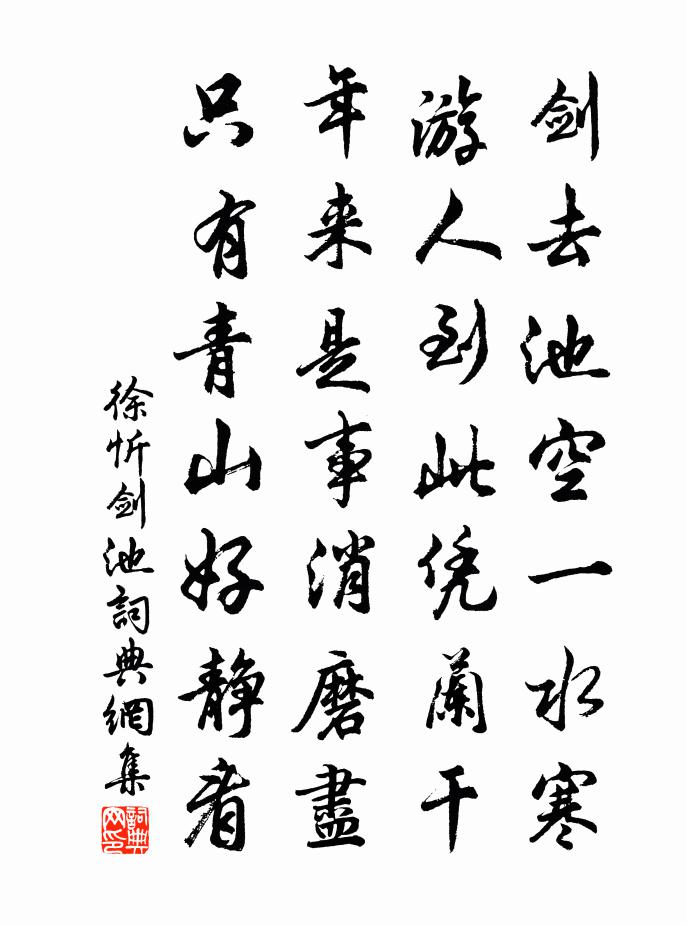 剑去池空一水寒
游人到此凭阑干
年来是事消磨盡
只有青山好静看
徐忻剑池詞典網集
詞典网印